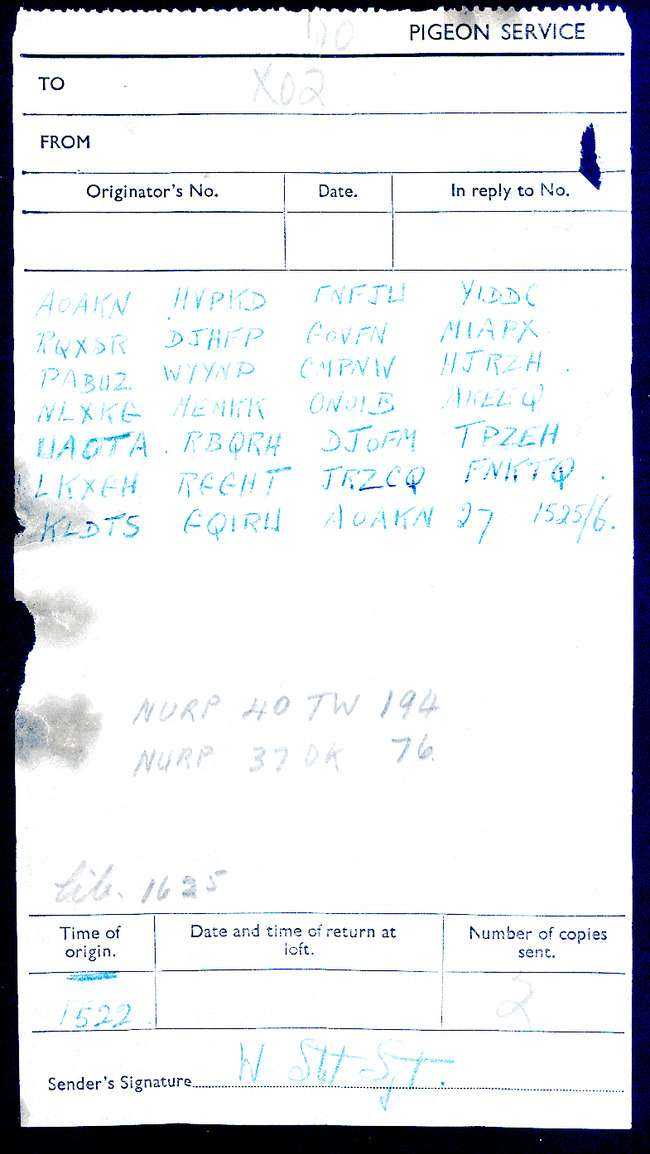 PIGEON SERVICE
TO X02
FROM
Originator's No. Date. In reply to No.
AOAKN HVPKD FNFJU YIDDC
RQXDR DJHFP GOVFN MIAPX
PABUZ WYYNP CMPNW HJRZH
NLXKG MEMKK ONOIB AKEEQ
UAOTA RBQRH DJOFM TPZEH
LKXGH RGGHT JRZCQ FNKTQ
KLDTS GQIRU AOAKN 27 1525/6.
NURP 40 TW 194
NURP 37 DK 76
lib. 1625
Time of origin. Date and time of return at loft. Number of copies sent.
1522 2
Sender's Signature W Stt Sjt.